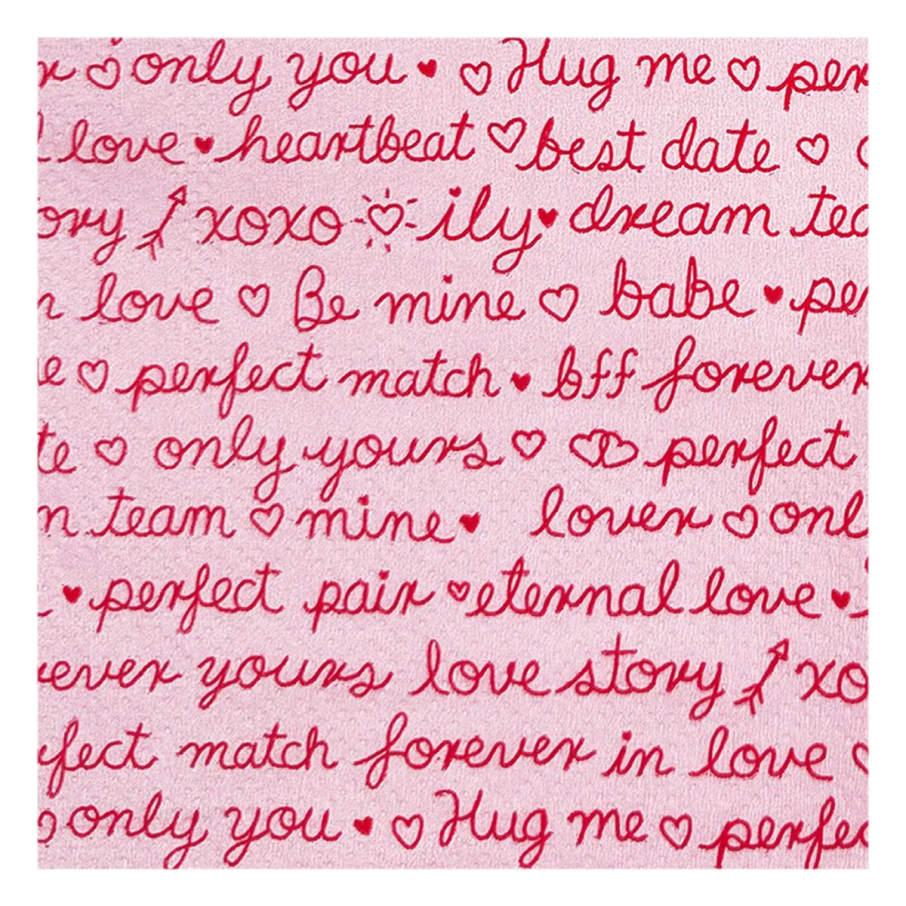 only you Hug me
love heartbeat best date
xoxo ily dream
love Be mine babe
perfect match bff forever
only yours perfect
team mine lover
perfect pair eternal love
yours love story
match forever in love
only you Hug me